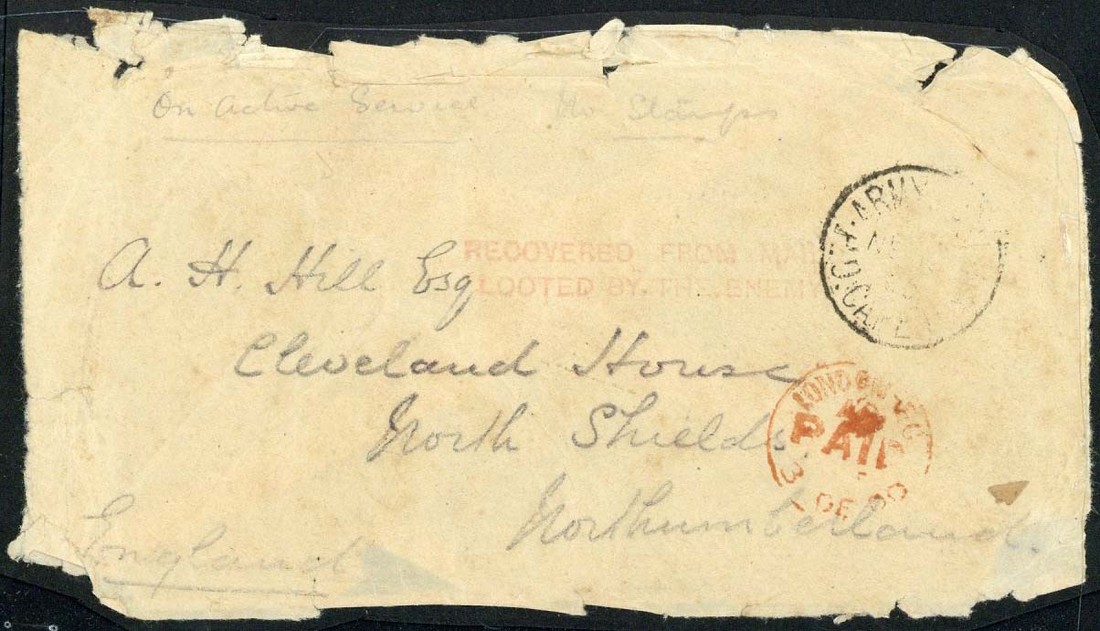 On Active Service No Stamps
RECOVERED FROM MAIL
LOOTED BY THE ENEMY
A. H. Hill Esq
Cleveland House
North Shields
Northumberland.
England
ARMY
CAPE
LONDON
PAID
DE 00